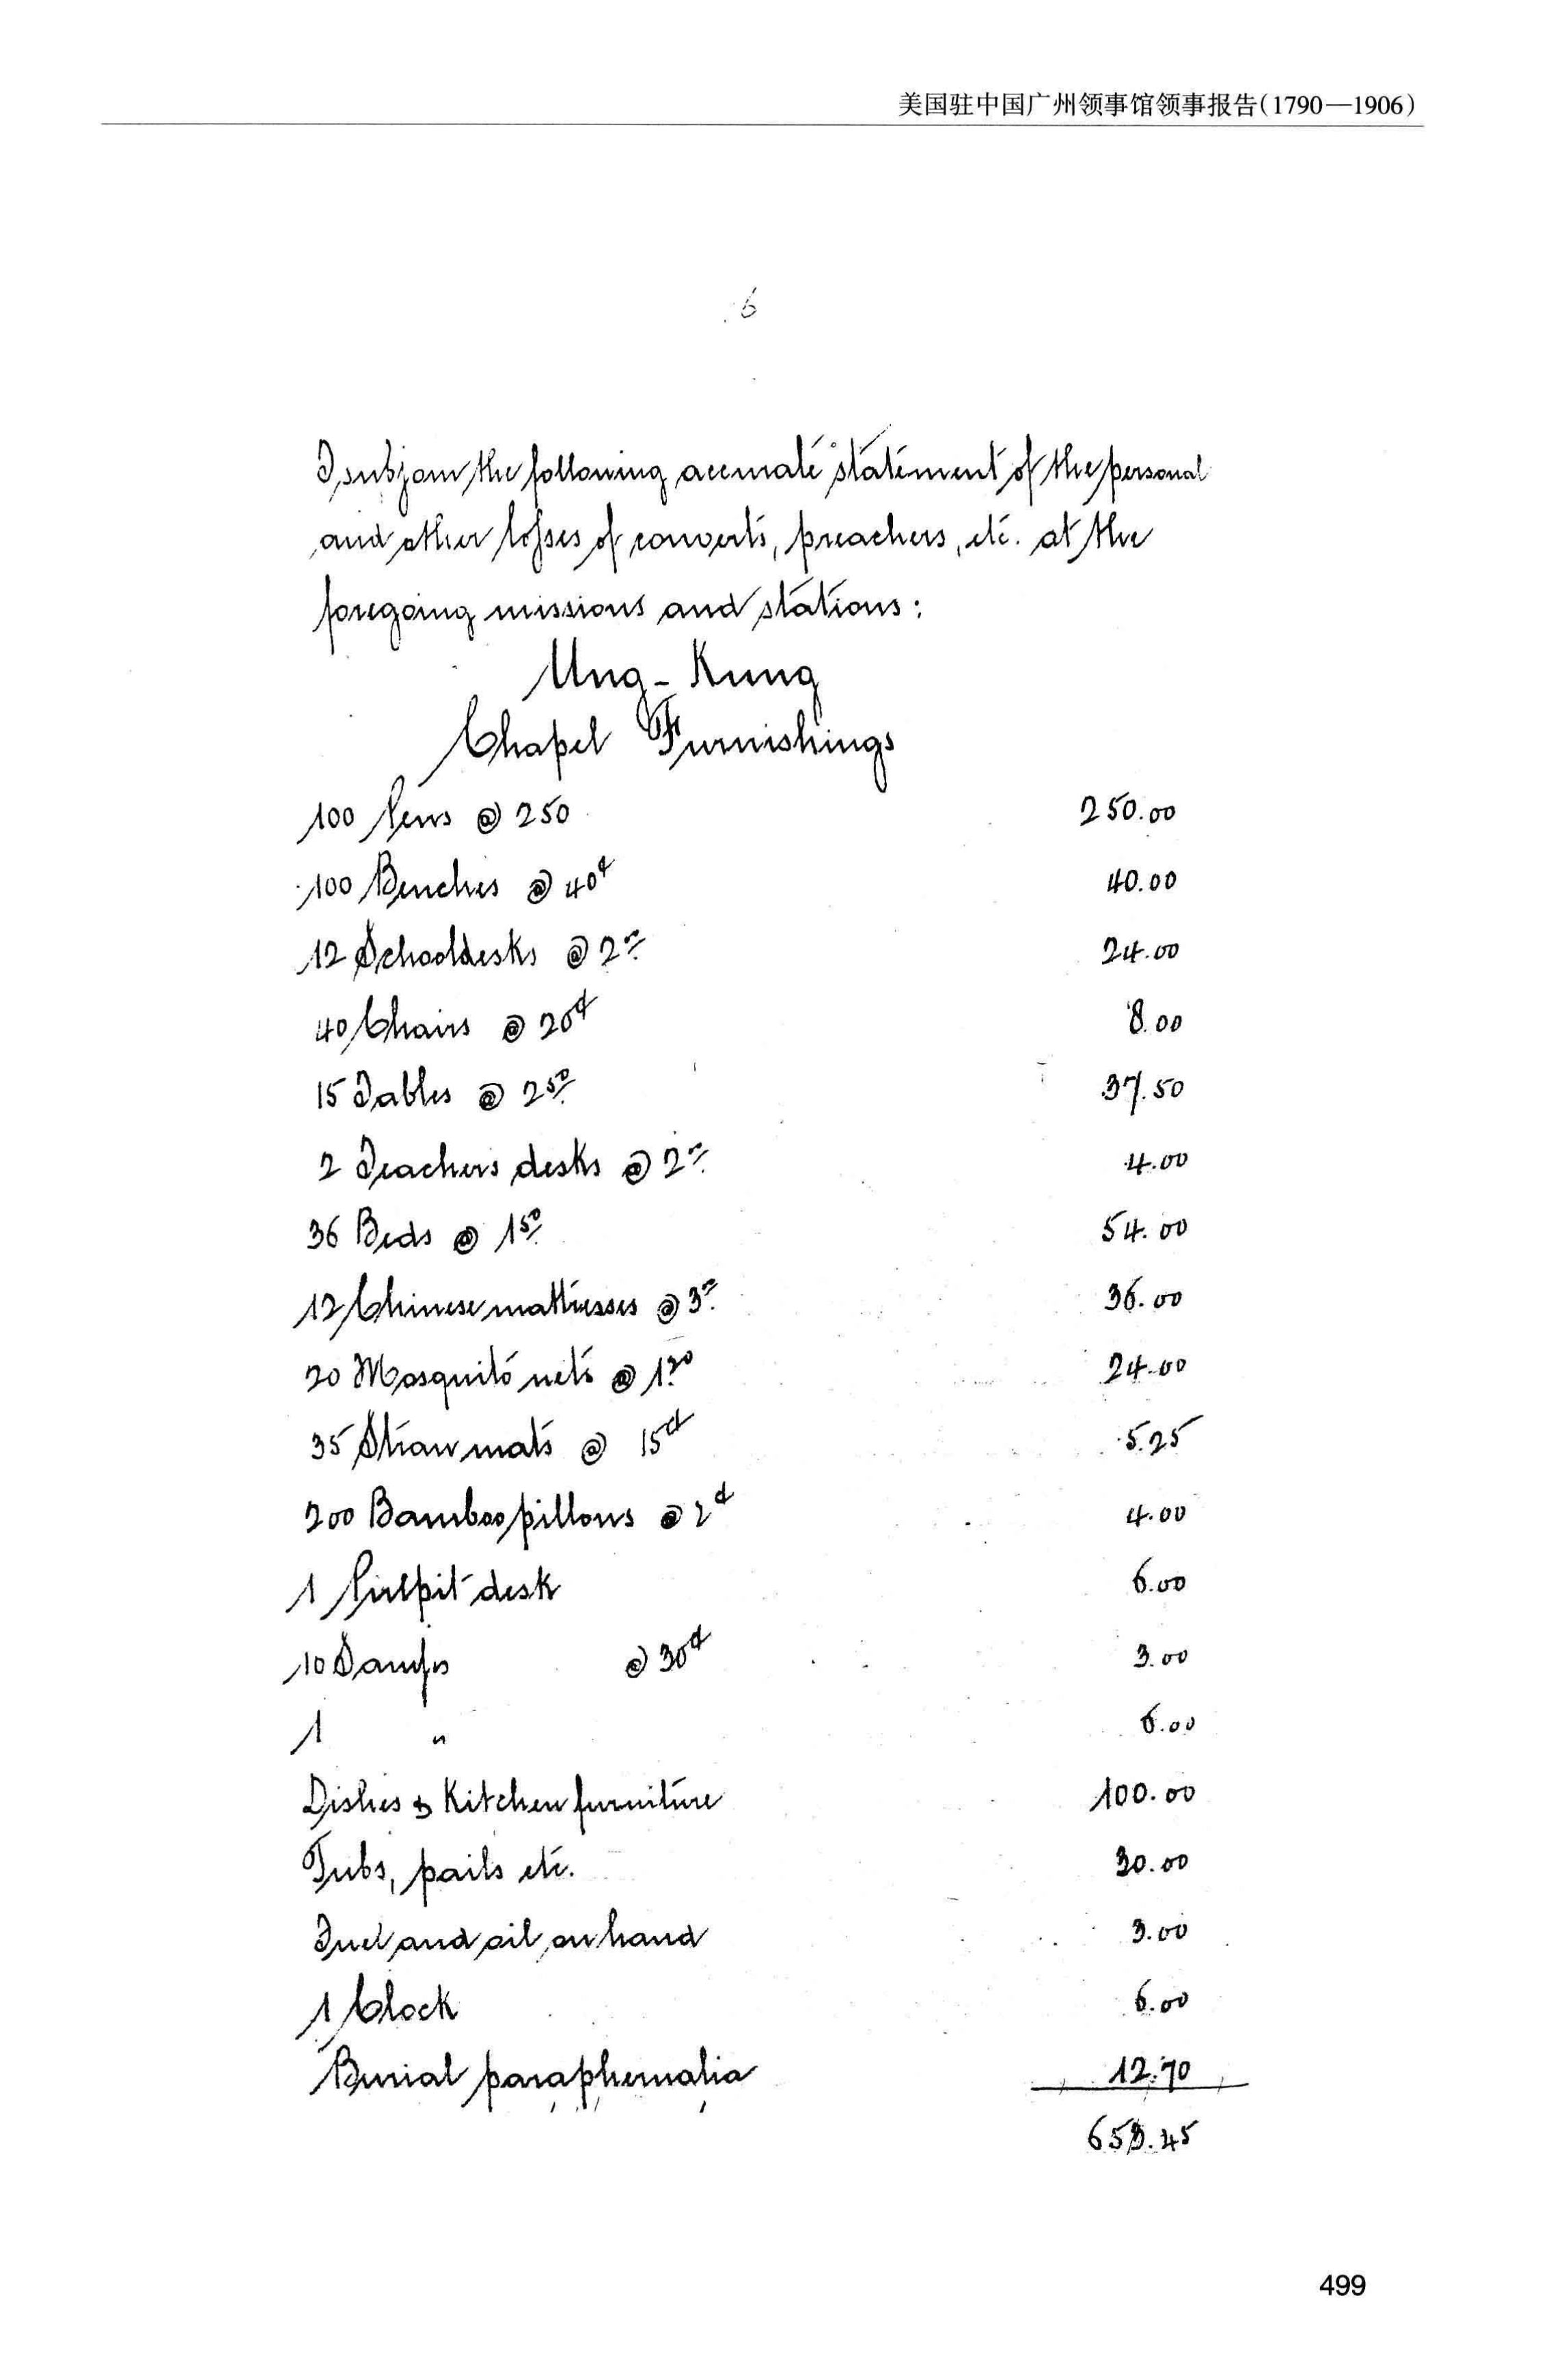 美国驻中国广州领事馆领事报告(1790—1906)
6
I subjoin the following accurate statement of the personal
and other losses of converts, preachers, etc. at the
foregoing missions and stations:
Ung-Kung
Chapel Furnishings
100 Pews @ 250 250.00
100 Benches @ 40¢ 40.00
12 Schooldesks @ 2.00 24.00
40 Chairs @ 20¢ 8.00
15 Tables @ 2.50 37.50
2 Teachers desks @ 2.00 4.00
36 Beds @ 1.50 54.00
12 Chinese mattresses @ 3.00 36.00
20 Mosquito nets @ 1.20 24.00
35 Straw mats @ 15¢ 5.25
200 Bamboo pillows @ 2¢ 4.00
1 Pulpit desk 6.00
10 Lamps @ 30¢ 3.00
1 " 6.00
Dishes & Kitchen furniture 100.00
Tubs, pails etc. 30.00
Fuel and oil on hand 3.00
1 Clock 6.00
Burial paraphernalia 12.70
653.45
499